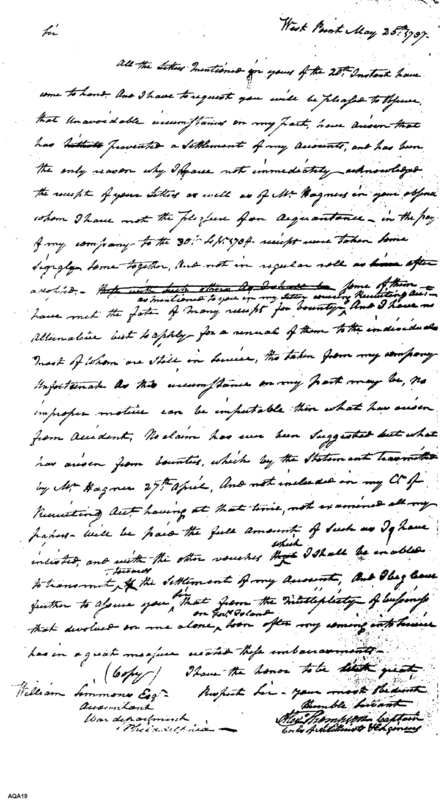 West Point May 25th 1797.
Sir
All the Letters Mentioned in yours of the 20th Instant have
come to hand. And I have to request you will be pleased to
that Unavoidable circumstances on my part, have arisen that
has prevented a Settlement of my Accounts, and has been
the only reason why I have not immediately acknowledged
the receipt of your Letters as well as of Mr Wagners in your absence
whom I have not the pleasure of an Acquantance - in the pay
of my company to the 30th Sept. 1794 receipt were taken some
Singly some together, And not in regular roll as after
some of them
as mentioned to you in my letter Recruiting Acct
have met the fate of many receipt for bounty, And I have no
Alternative but to apply for a renual of them to the individuals
most of whom are still in Service, tho taken from my company
Unfortunate As this circumstance on my part may be, no
improper motive can be imputable then what has arisen
from Accident, No claim has ever been Suggested but what
has arisen from bounties, which by the Statement
by Mr Wagner 27th April, And not included in my
Recruiting Acct having at that time, not examined all my
papers - will be paid the full amount of Such as I have
inlisted, and with the other vouches which I Shall be enabled
to transmit, the Settlement of my Account, And I beg leave
further to assure you Sir that from the of business
on Govs Island
that devolved on me alone, soon after my coming into Service
has in a great measure created these embarrassments -
(Copy) I have the honor to be great
William Simmons Esqr Respect Sir - your most Obedient
Accountant Humble Servant
War department Alexr Thompson Captain
Philadelphia - Corps Artillerists & Engineers
AQA19